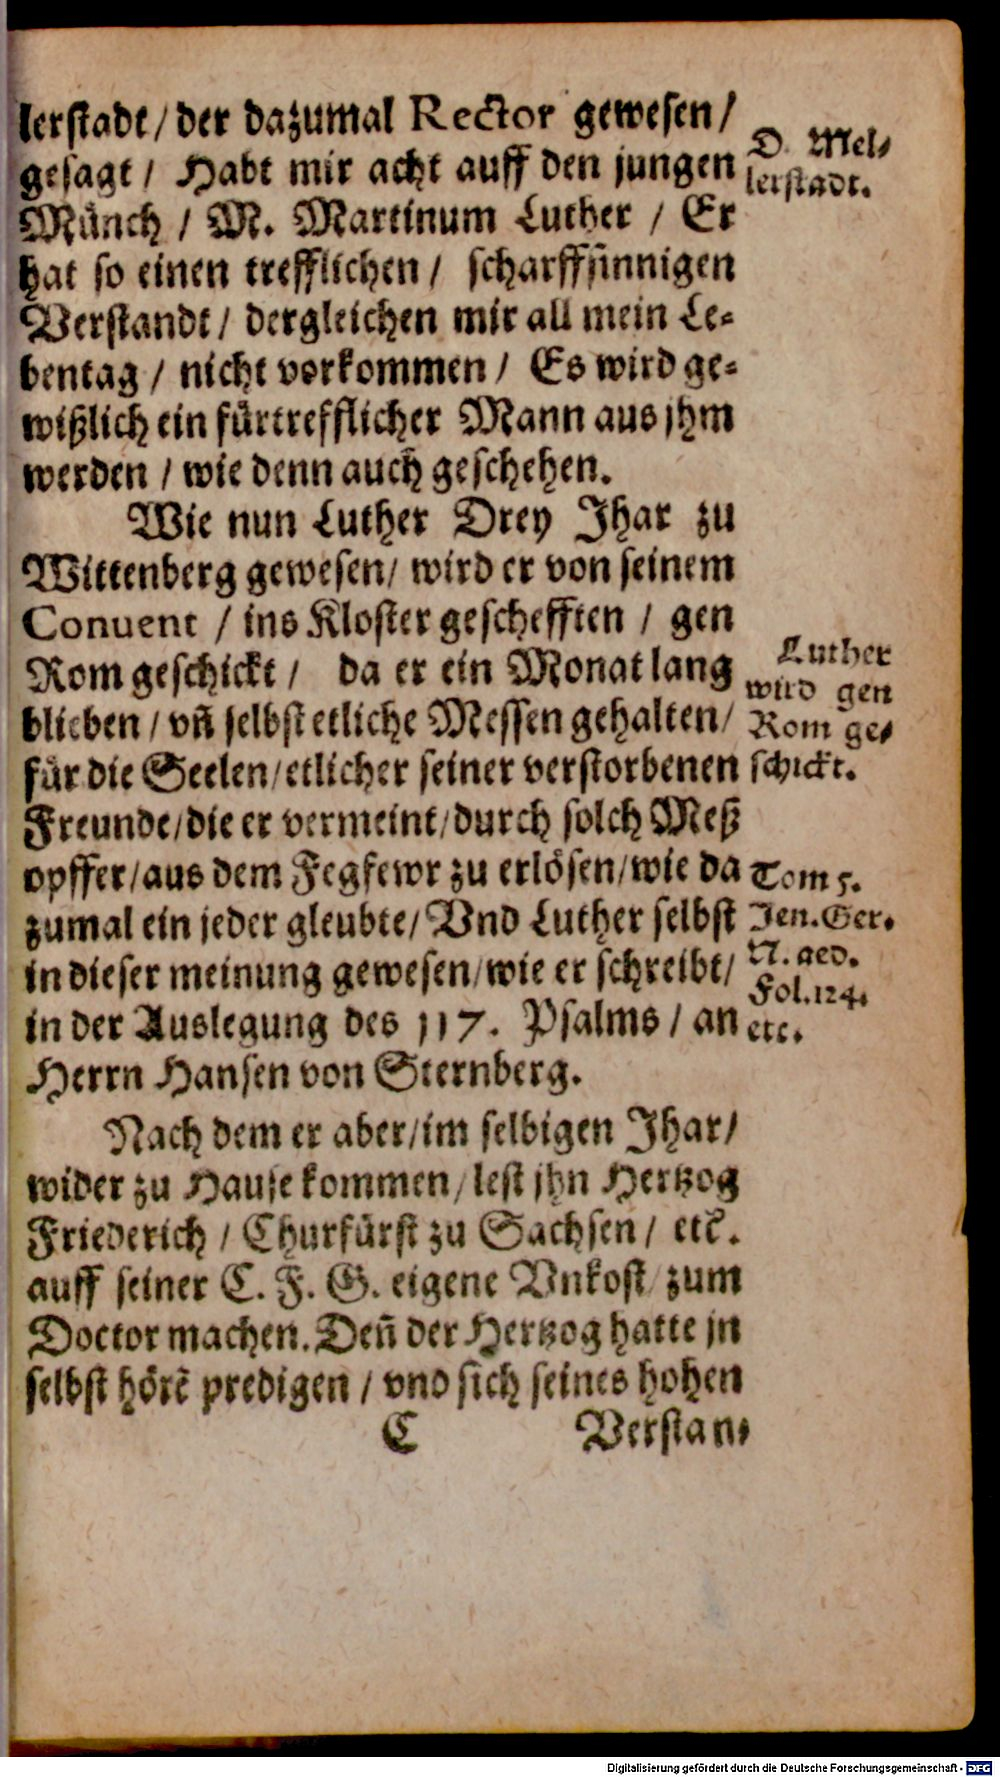 lerstadt / der dazumal Rector gewesen /
gesagt / Habt mir acht auff den jungen
Münch / M. Martinum Luther / Er
hat so einen trefflichen / scharffsinnigen
Verstandt / dergleichen mir all mein Le-
bentag / nicht vorkommen / Es wird ge-
wißlich ein fürtrefflicher Mann aus jhm
werden / wie denn auch geschehen.
D. Mel-
lerstadt.
Wie nun Luther Drey Jhar zu
Wittenberg gewesen / wird er von seinem
Conuent / ins Kloster geschefften / gen
Rom geschickt / da er ein Monat lang
blieben / vñ selbst etliche Messen gehalten /
für die Seelen / etlicher seiner verstorbenen
Freunde / die er vermeint / durch solch Meß
opffer / aus dem Fegfewr zu erlösen / wie da
zumal ein jeder gleubte / Vnd Luther selbst
in dieser meinung gewesen / wie er schreibt /
in der Auslegung des 117. Psalms / an
Herrn Hansen von Sternberg.
Luther
wird gen
Rom ge-
schickt.
Tom 5.
Jen. Ger.
N. aed.
Fol. 124.
etc.
Nach dem er aber / im selbigen Jhar /
wider zu Hause kommen / lest jhn Hertzog
Friederich / Churfürst zu Sachsen / etc̃.
auff seiner C. F. G. eigene Vnkost / zum
Doctor machen. Deñ der Hertzog hatte jn
selbst hörẽ predigen / vnd sich seines hohen
C Verstan-
Digitalisierung gefördert durch die Deutsche Forschungsgemeinschaft - DFG